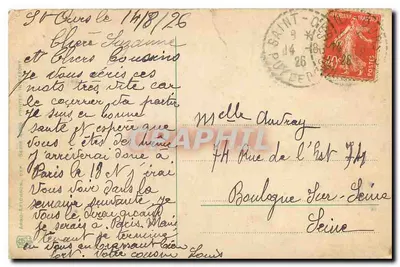 St Ours le 14/8/26
Chère Suzanne
et Chers Cousins
Je vous écris ces
mots très vite car
le va partir
je suis en bonne
santé et espère que
vous l'êtes de même
J'arriverai donc à
Paris le 19 j'irai
Vous voir dans la
semaine suivante Je
vous le dirai quand
je serais à Paris. Mais
tenant je termine
en vous embrassant bien
fort. Votre cousin Louis
SAINT-O
14 -8
26
PUY DE
POSTES
Melle Audray
74 Rue de l'Est 74
Boulogne Sur-Seine
Seine
CPARAMA